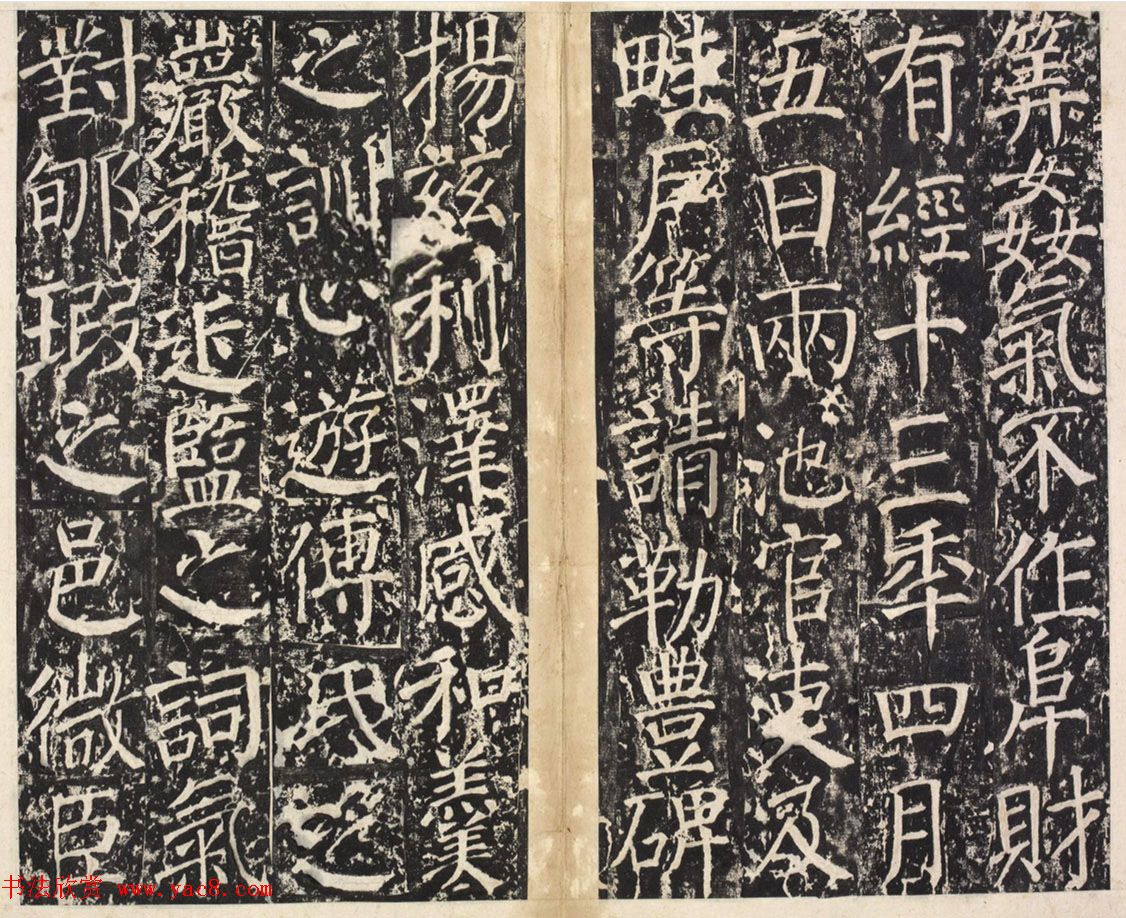 筭姦氣不作阜財
有經十三年四月
五日兩池官吏及
畦戶等請勒豐碑
揚茲利澤感和羹
之訓心遊傅氏之
巖稽近監之詞氣
對郇瑕之邑微臣
书法欣赏 www.yac8.com